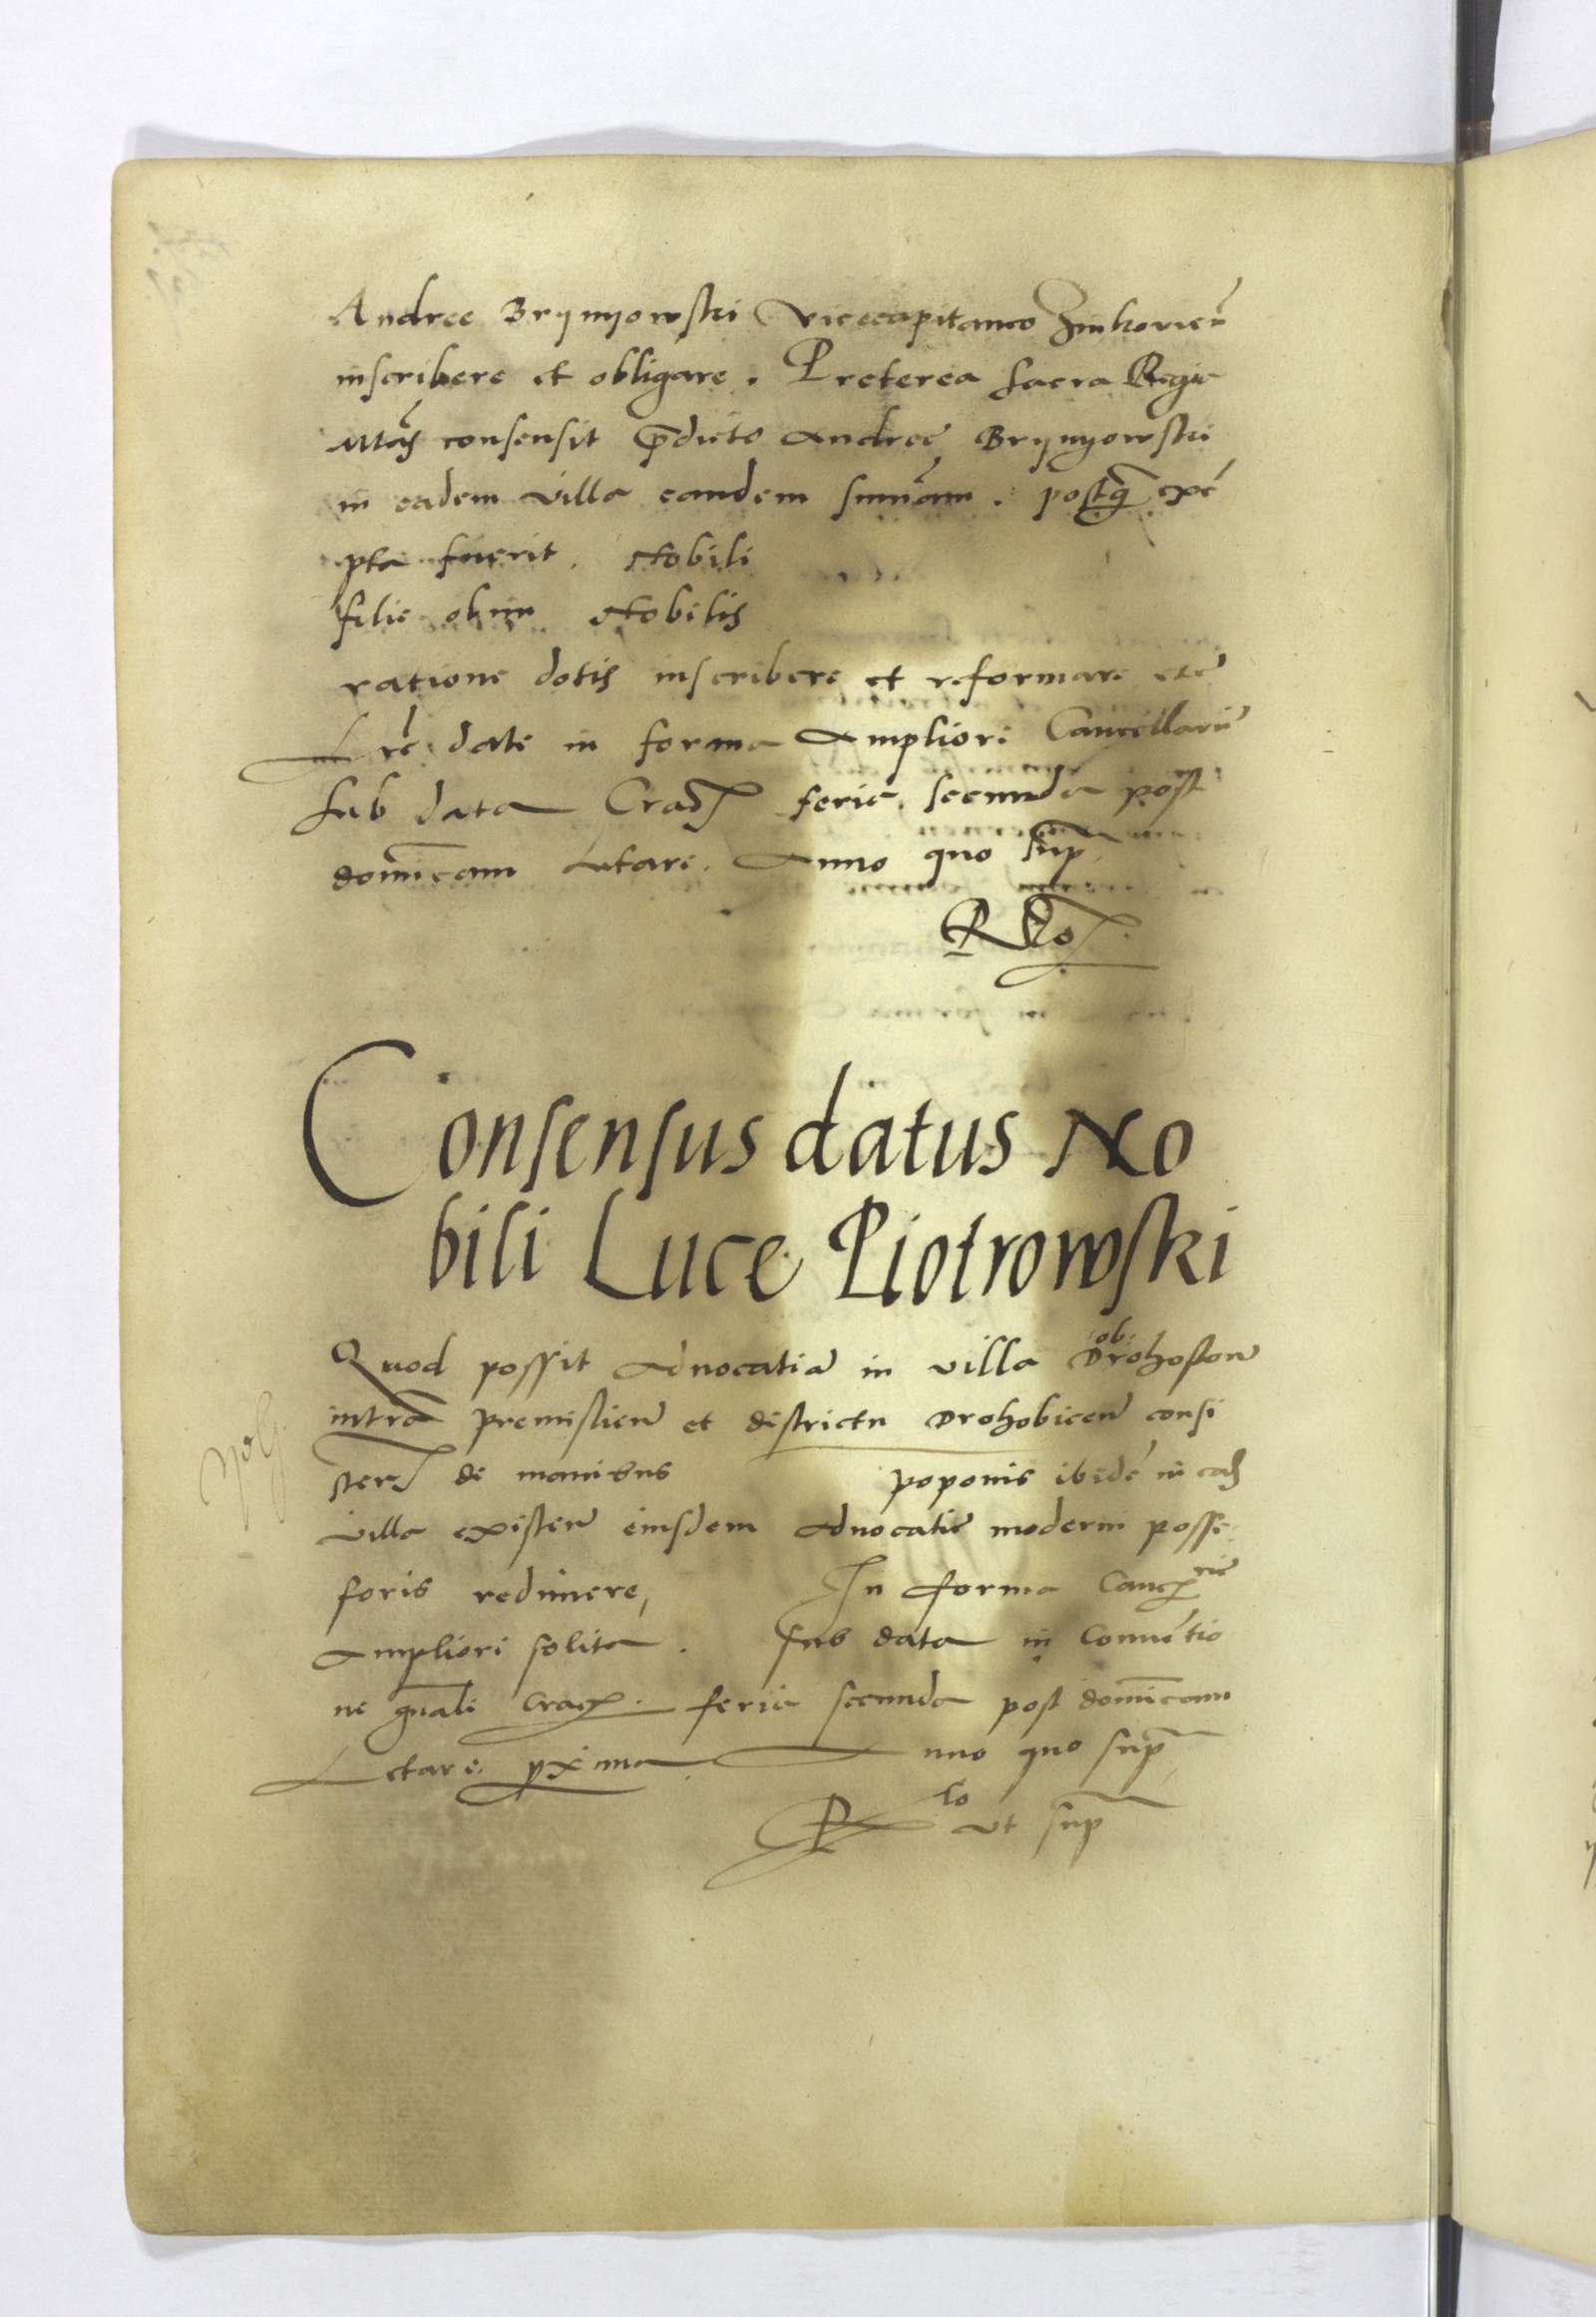 Andree Brynyowski Vicecapitaneo Zinkovień
inscribere et obligare . Preterea Sacra Regia
Mtas consensit p̄dicto Andree Brynyowski
in eadem villa eandem sum̄am . postq̄ exẽ
pta fuerit . Nobili
filie olim Nobilis
ratione dotis inscribere et reformare etc
Lr̃e date in forma Ampliori Cancellarie
sub data Crac feria secunda post
domīcam Letare . Anno quo sup̄
Consensus datus No
bili Luce Piotrowski
Quod possit Advocatiã in villa Drohoston
ob:
intra premislien̄ et districtu Drohobicen̄ consi
sten de manibus poponis ibidẽ in eadē
villa existen̄ eiusdem Advocatie moderni posse
soris redimere, In forma Canc rie
Ampliori solita . Sub data in Convẽtio
ne gn̄ali Crac . feria secunda post domīcam
Letare pxima . Anno quo sup̄
R lo ut sup̄